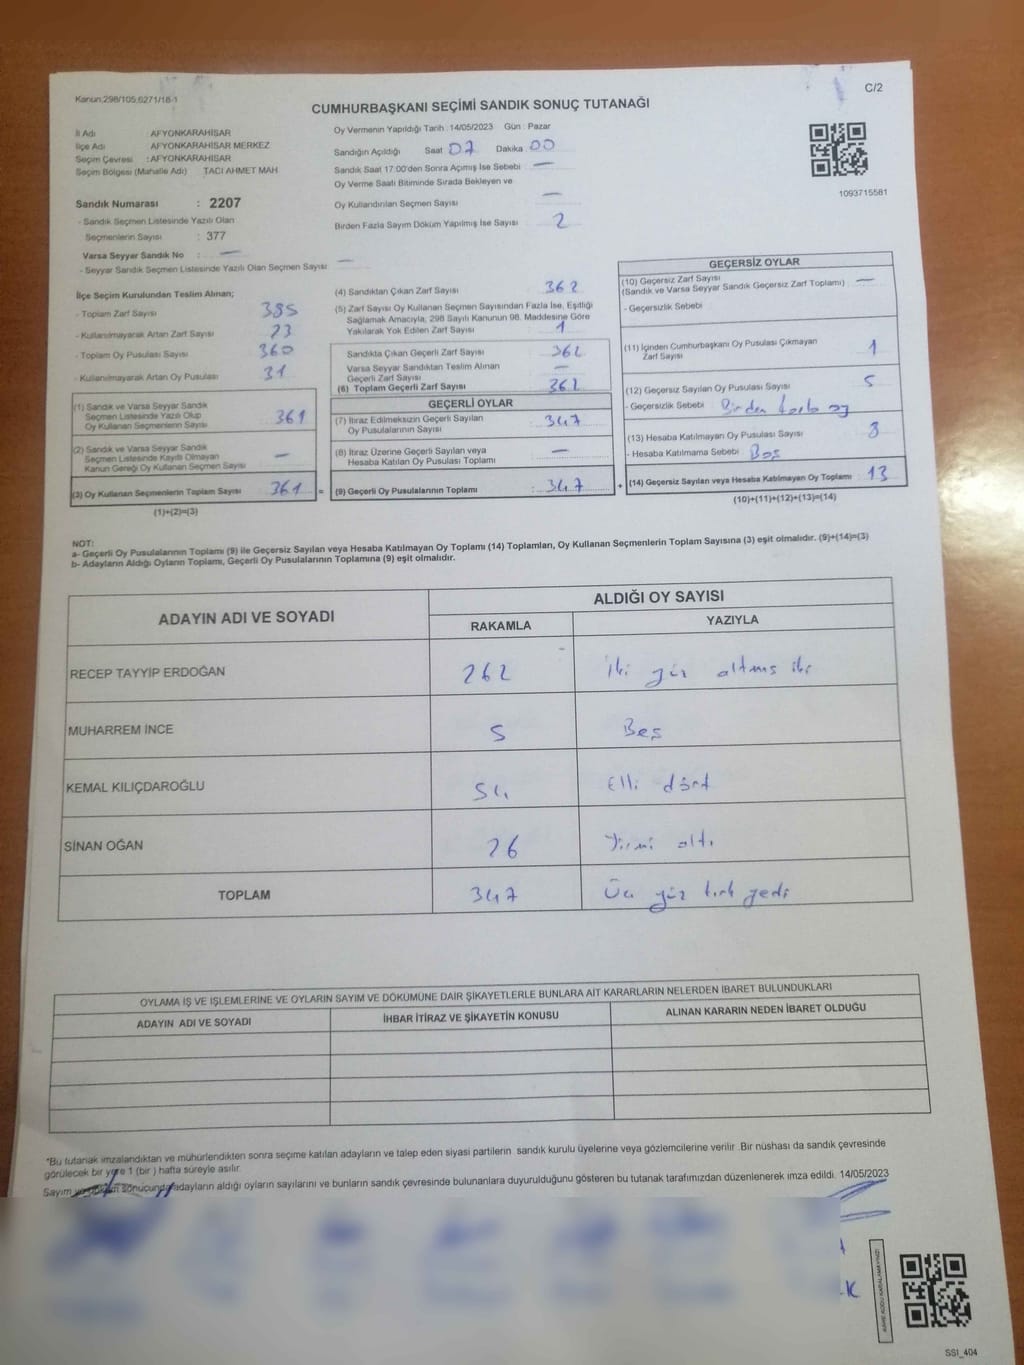 Kanun:298/105,6271/18-1
C/2
CUMHURBAŞKANI SEÇİMİ SANDIK SONUÇ TUTANAĞI
İl Adı : AFYONKARAHİSAR
İlçe Adı : AFYONKARAHİSAR MERKEZ
Seçim Çevresi : AFYONKARAHİSAR
Seçim Bölgesi (Mahalle Adı) TACI AHMET MAH
Oy Vermenin Yapıldığı Tarih : 14/05/2023 Gün : Pazar
Sandığın Açıldığı Saat 07 Dakika 00
Sandık Saat 17:00'den Sonra Açılmış İse Sebebi : —
Oy Verme Saati Bitiminde Sırada Bekleyen ve
Oy Kullandırılan Seçmen Sayısı —
Birden Fazla Sayım Döküm Yapılmış İse Sayısı 2
1093715581
Sandık Numarası : 2207
- Sandık Seçmen Listesinde Yazılı Olan
Seçmenlerin Sayısı : 377
Varsa Seyyar Sandık No : —
- Seyyar Sandık Seçmen Listesinde Yazılı Olan Seçmen Sayısı —
İlçe Seçim Kurulundan Teslim Alınan;
- Toplam Zarf Sayısı 385
- Kullanılmayarak Artan Zarf Sayısı 23
- Toplam Oy Pusulası Sayısı 360
- Kullanılmayarak Artan Oy Pusulası 31
(1) Sandık ve Varsa Seyyar Sandık
Seçmen Listesinde Yazılı Olup
Oy Kullanan Seçmenlerin Sayısı 361
(2) Sandık ve Varsa Seyyar Sandık
Seçmen Listesinde Kayıtlı Olmayan
Kanun Gereği Oy Kullanan Seçmen Sayısı —
(3) Oy Kullanan Seçmenlerin Toplam Sayısı 361 =
(1)+(2)=(3)
(4) Sandıktan Çıkan Zarf Sayısı 362
(5) Zarf Sayısı Oy Kullanan Seçmen Sayısından Fazla İse, Eşitliği
Sağlamak Amacıyla, 298 Sayılı Kanunun 98. Maddesine Göre
Yakılarak Yok Edilen Zarf Sayısı 1
Sandıkta Çıkan Geçerli Zarf Sayısı 362
Varsa Seyyar Sandıktan Teslim Alınan
Geçerli Zarf Sayısı —
(6) Toplam Geçerli Zarf Sayısı 362
GEÇERLİ OYLAR
(7) İtiraz Edilmeksizin Geçerli Sayılan
Oy Pusulalarının Sayısı : 347
(8) İtiraz Üzerine Geçerli Sayılan veya
Hesaba Katılan Oy Pusulası Toplamı —
(9) Geçerli Oy Pusulalarının Toplamı : 347 +
GEÇERSİZ OYLAR
(10) Geçersiz Zarf Sayısı
(Sandık ve Varsa Seyyar Sandık Geçersiz Zarf Toplamı) —
- Geçersizlik Sebebi
(11) İçinden Cumhurbaşkanı Oy Pusulası Çıkmayan
Zarf Sayısı 1
(12) Geçersiz Sayılan Oy Pusulası Sayısı 5
- Geçersizlik Sebebi Birden fazla oy
(13) Hesaba Katılmayan Oy Pusulası Sayısı 8
- Hesaba Katılmama Sebebi Boş
(14) Geçersiz Sayılan veya Hesaba Katılmayan Oy Toplamı : 13
(10)+(11)+(12)+(13)=(14)
NOT:
a- Geçerli Oy Pusulalarının Toplamı (9) ile Geçersiz Sayılan veya Hesaba Katılmayan Oy Toplamı (14) Toplamları, Oy Kullanan Seçmenlerin Toplam Sayısına (3) eşit olmalıdır. (9)+(14)=(3)
b- Adayların Aldığı Oyların Toplamı, Geçerli Oy Pusulalarının Toplamına (9) eşit olmalıdır.
ADAYIN ADI VE SOYADI
ALDIĞI OY SAYISI
RAKAMLA YAZIYLA
RECEP TAYYİP ERDOĞAN 262 İki yüz altmış iki
MUHARREM İNCE 5 Beş
KEMAL KILIÇDAROĞLU 54 Elli dört
SİNAN OĞAN 26 Yirmi altı
TOPLAM 347 Üç yüz kırk yedi
OYLAMA İŞ VE İŞLEMLERİNE VE OYLARIN SAYIM VE DÖKÜMÜNE DAİR ŞİKAYETLERLE BUNLARA AİT KARARLARIN NELERDEN İBARET BULUNDUKLARI
ADAYIN ADI VE SOYADI İHBAR İTİRAZ VE ŞİKAYETİN KONUSU ALINAN KARARIN NEDEN İBARET OLDUĞU
*Bu tutanak imzalandıktan ve mühürlendikten sonra seçime katılan adayların ve talep eden siyasi partilerin sandık kurulu üyelerine veya gözlemcilerine verilir. Bir nüshası da sandık çevresinde
görülecek bir yere 1 (bir) hafta süreyle asılır.
Sayım ve döküm sonucunda adayların aldığı oyların sayılarını ve bunların sandık çevresinde bulunanlara duyurulduğunu gösteren bu tutanak tarafımızdan düzenlenerek imza edildi. 14/05/2023
SSI_404